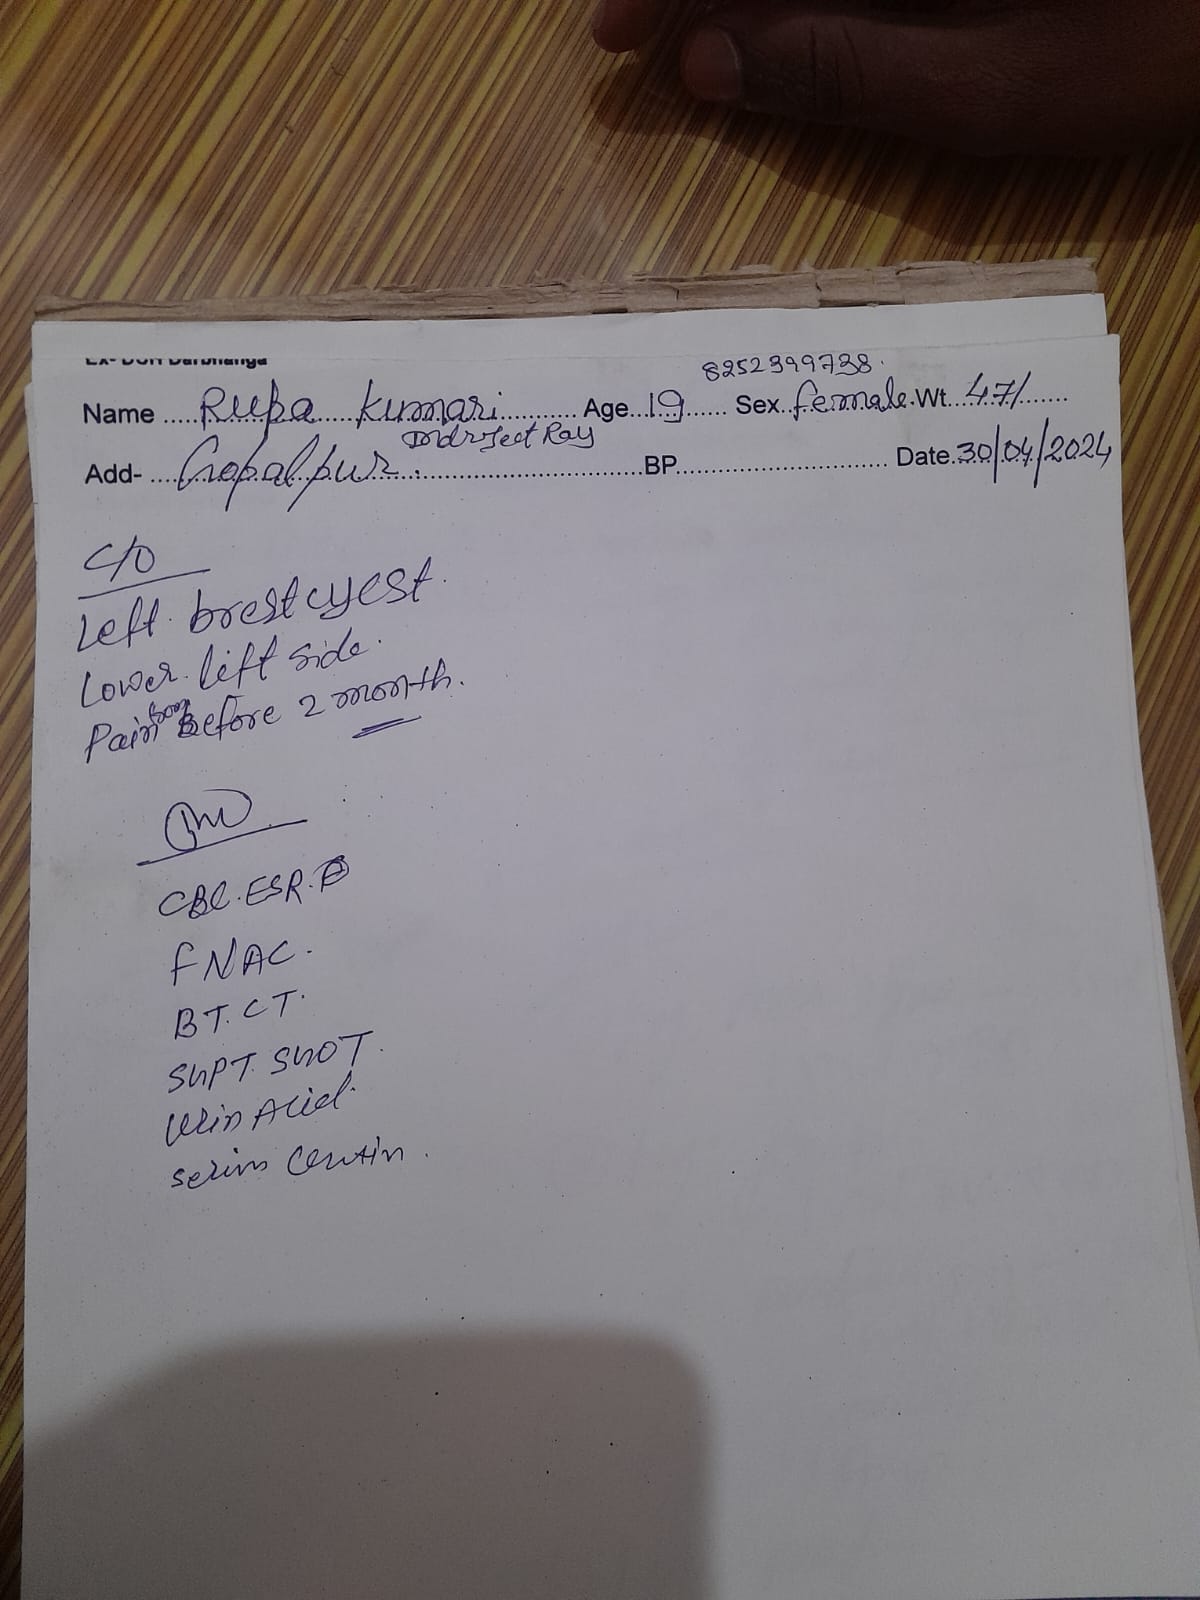 Ex- DCH Darbhanga
8252399738.
Name Rupa Kumari Age 19 Sex female Wt 47/
Indrajeet Ray
Add- Gopalpur. BP Date 30/04/2024
C/O
Left. brest cyest.
Lower. left side.
Pain from Before 2 month.
CBC. ESR.
FNAC.
BT. CT.
SGPT. SGOT.
Urin Acid.
serim